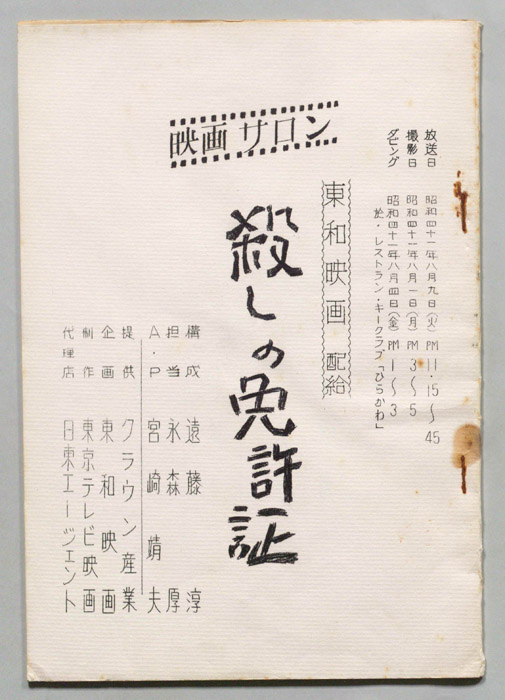 映画サロン
放送日 昭和四十一年八月九日(火)PM 11・15〜45
撮影日 昭和四十一年八月一日(月)PM 3〜5
ダビング 昭和四十一年八月四日(金)PM 1〜3
於・レストラン・キークラブ「ひらかわ」
東和映画 配給
殺しの免許証
構成 遠藤 淳
担当 永森 厚
A・P 宮崎靖夫
提供 クラウン産業
企画 東和映画
制作 東京テレビ映画
代理店 日東エージェント